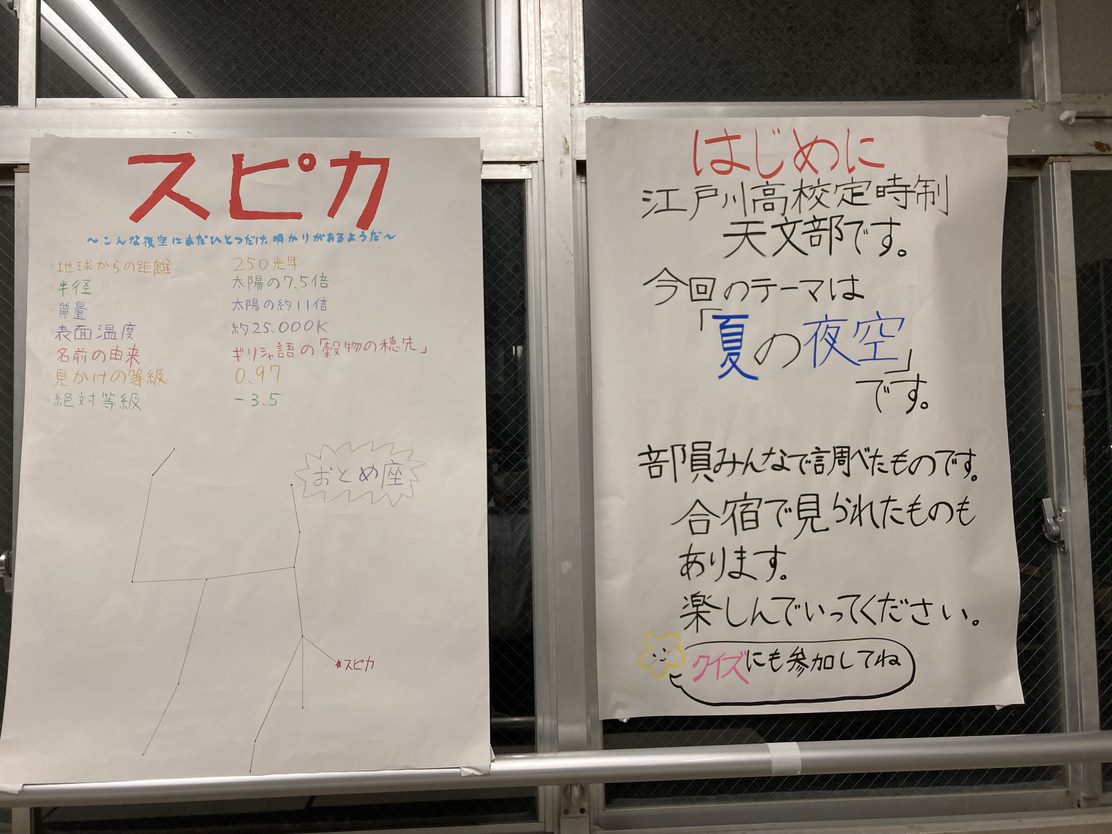 スピカ
〜こんな夜空にまだひとつだけ、明かりがあるようだ〜
地球からの距離 250光年
半径 太陽の7.5倍
質量 太陽の約11倍
表面温度 約25.000K
名前の由来 ギリシャ語の「穀物の穂先」
見かけの等級 0.97
絶対等級 -3.5
おとめ座
スピカ
はじめに
江戸川高校定時制
天文部です。
今回のテーマは
「夏の夜空」
です。
部員みんなで調べたものです。
合宿で見られたものも
あります。
楽しんでいってください。
クイズにも参加してね